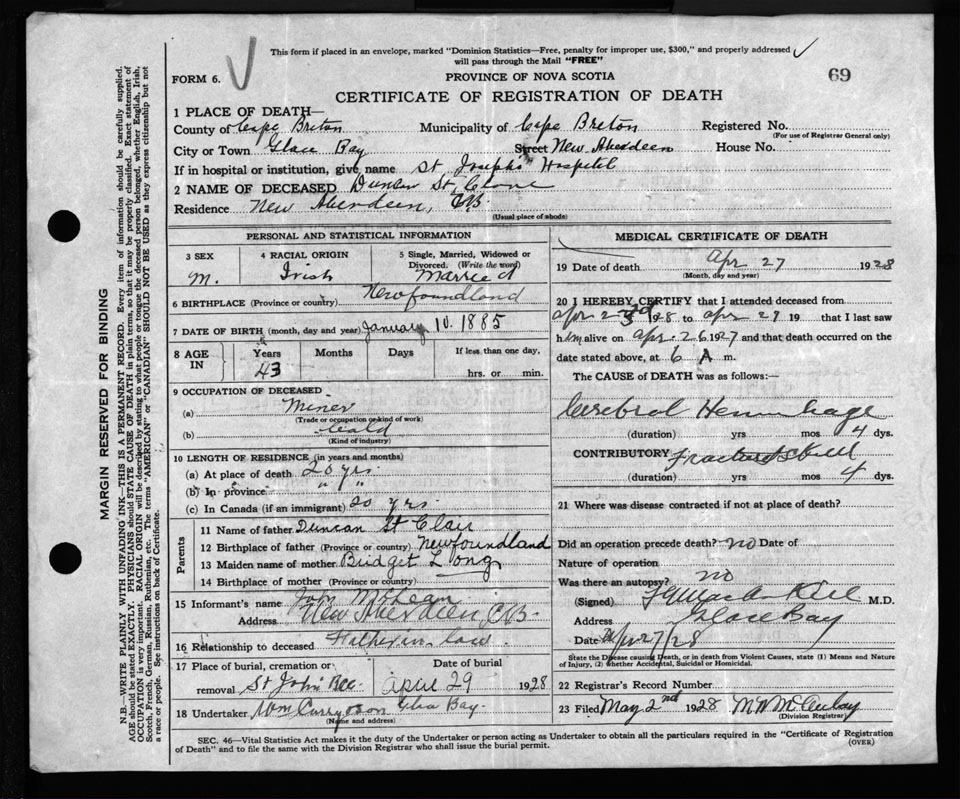 This form if placed in an envelope, marked "Dominion Statistics—Free, penalty for improper use, $300," and properly addressed
will pass through the Mail "FREE"
FORM 6.
PROVINCE OF NOVA SCOTIA
69
CERTIFICATE OF REGISTRATION OF DEATH
1 PLACE OF DEATH—
County of Cape Breton Municipality of Cape Breton Registered No.
(For use of Registrar General only)
City or Town Glace Bay Street New Aberdeen House No.
If in hospital or institution, give name St Josephs Hospital
2 NAME OF DECEASED Duncan St
Residence New Aberdeen, CB.
(Usual place of abode)
PERSONAL AND STATISTICAL INFORMATION
3 SEX 4 RACIAL ORIGIN 5 Single, Married, Widowed or
Divorced. (Write the word)
M. Irish Married
6 BIRTHPLACE (Province or country) Newfoundland
7 DATE OF BIRTH (month, day and year) January 10. 1885
8 AGE IN Years Months Days If less than one day,
43 hrs. or min.
9 OCCUPATION OF DECEASED
(a) Miner
(Trade or occupation or kind of work)
(b)
(Kind of industry)
10 LENGTH OF RESIDENCE (in years and months)
(a) At place of death 20 yrs.
(b) In province " "
(c) In Canada (if an immigrant) 20 yrs
Parents
11 Name of father Duncan St Clair
12 Birthplace of father (Province or country) Newfoundland
13 Maiden name of mother Bridget Long
14 Birthplace of mother (Province or country)
15 Informant's name John
Address New Aberdeen CB.
16 Relationship to deceased Father in law.
17 Place of burial, cremation or Date of burial
removal St John April 29 1928
18 Undertaker Wm Glace Bay.
(Name and address)
MEDICAL CERTIFICATE OF DEATH
19 Date of death Apr 27 1928
(Month, day and year)
20 I HEREBY CERTIFY that I attended deceased from
Apr 23rd 1928 to Apr 27 19 that I last saw
him alive on Apr. 26 1927 and that death occurred on the
date stated above, at 6 A m.
The CAUSE of DEATH was as follows:—
Cerebral Hemorrhage
(duration) yrs mos 4 dys.
CONTRIBUTORY Fractured Skull
(duration) yrs mos 4 dys.
21 Where was disease contracted if not at place of death?
Did an operation precede death? no Date of
Nature of operation
Was there an autopsy? no
(Signed) M.D.
Address Glace Bay
Date Apr 27/28
State the Disease causing Death, or in death from Violent Causes, state (1) Means and Nature
of Injury, (2) whether Accidental, Suicidal or Homicidal.
22 Registrar's Record Number
23 Filed May 2nd 1928
(Division Registrar)
SEC. 46—Vital Statistics Act makes it the duty of the Undertaker or person acting as Undertaker to obtain all the particulars required in the "Certificate of Registration
of Death" and to file the same with the Division Registrar who shall issue the burial permit.
(OVER)
MARGIN RESERVED FOR BINDING
N.B.—WRITE PLAINLY WITH UNFADING INK—THIS IS A PERMANENT RECORD. Every item of information should be carefully supplied.
AGE should be stated EXACTLY. PHYSICIANS should STATE CAUSE OF DEATH in plain terms, so that it may be properly classified. Exact statement of
OCCUPATION is very important. RACIAL ORIGIN will be described by stating to what people or tongue the deceased person belonged, whether English, Irish,
Scotch, French, German, Russian, Ruthenian, etc. The terms "AMERICAN" or "CANADIAN" SHOULD NOT BE USED as they express citizenship but not
a race or people. See instructions on back of Certificate.